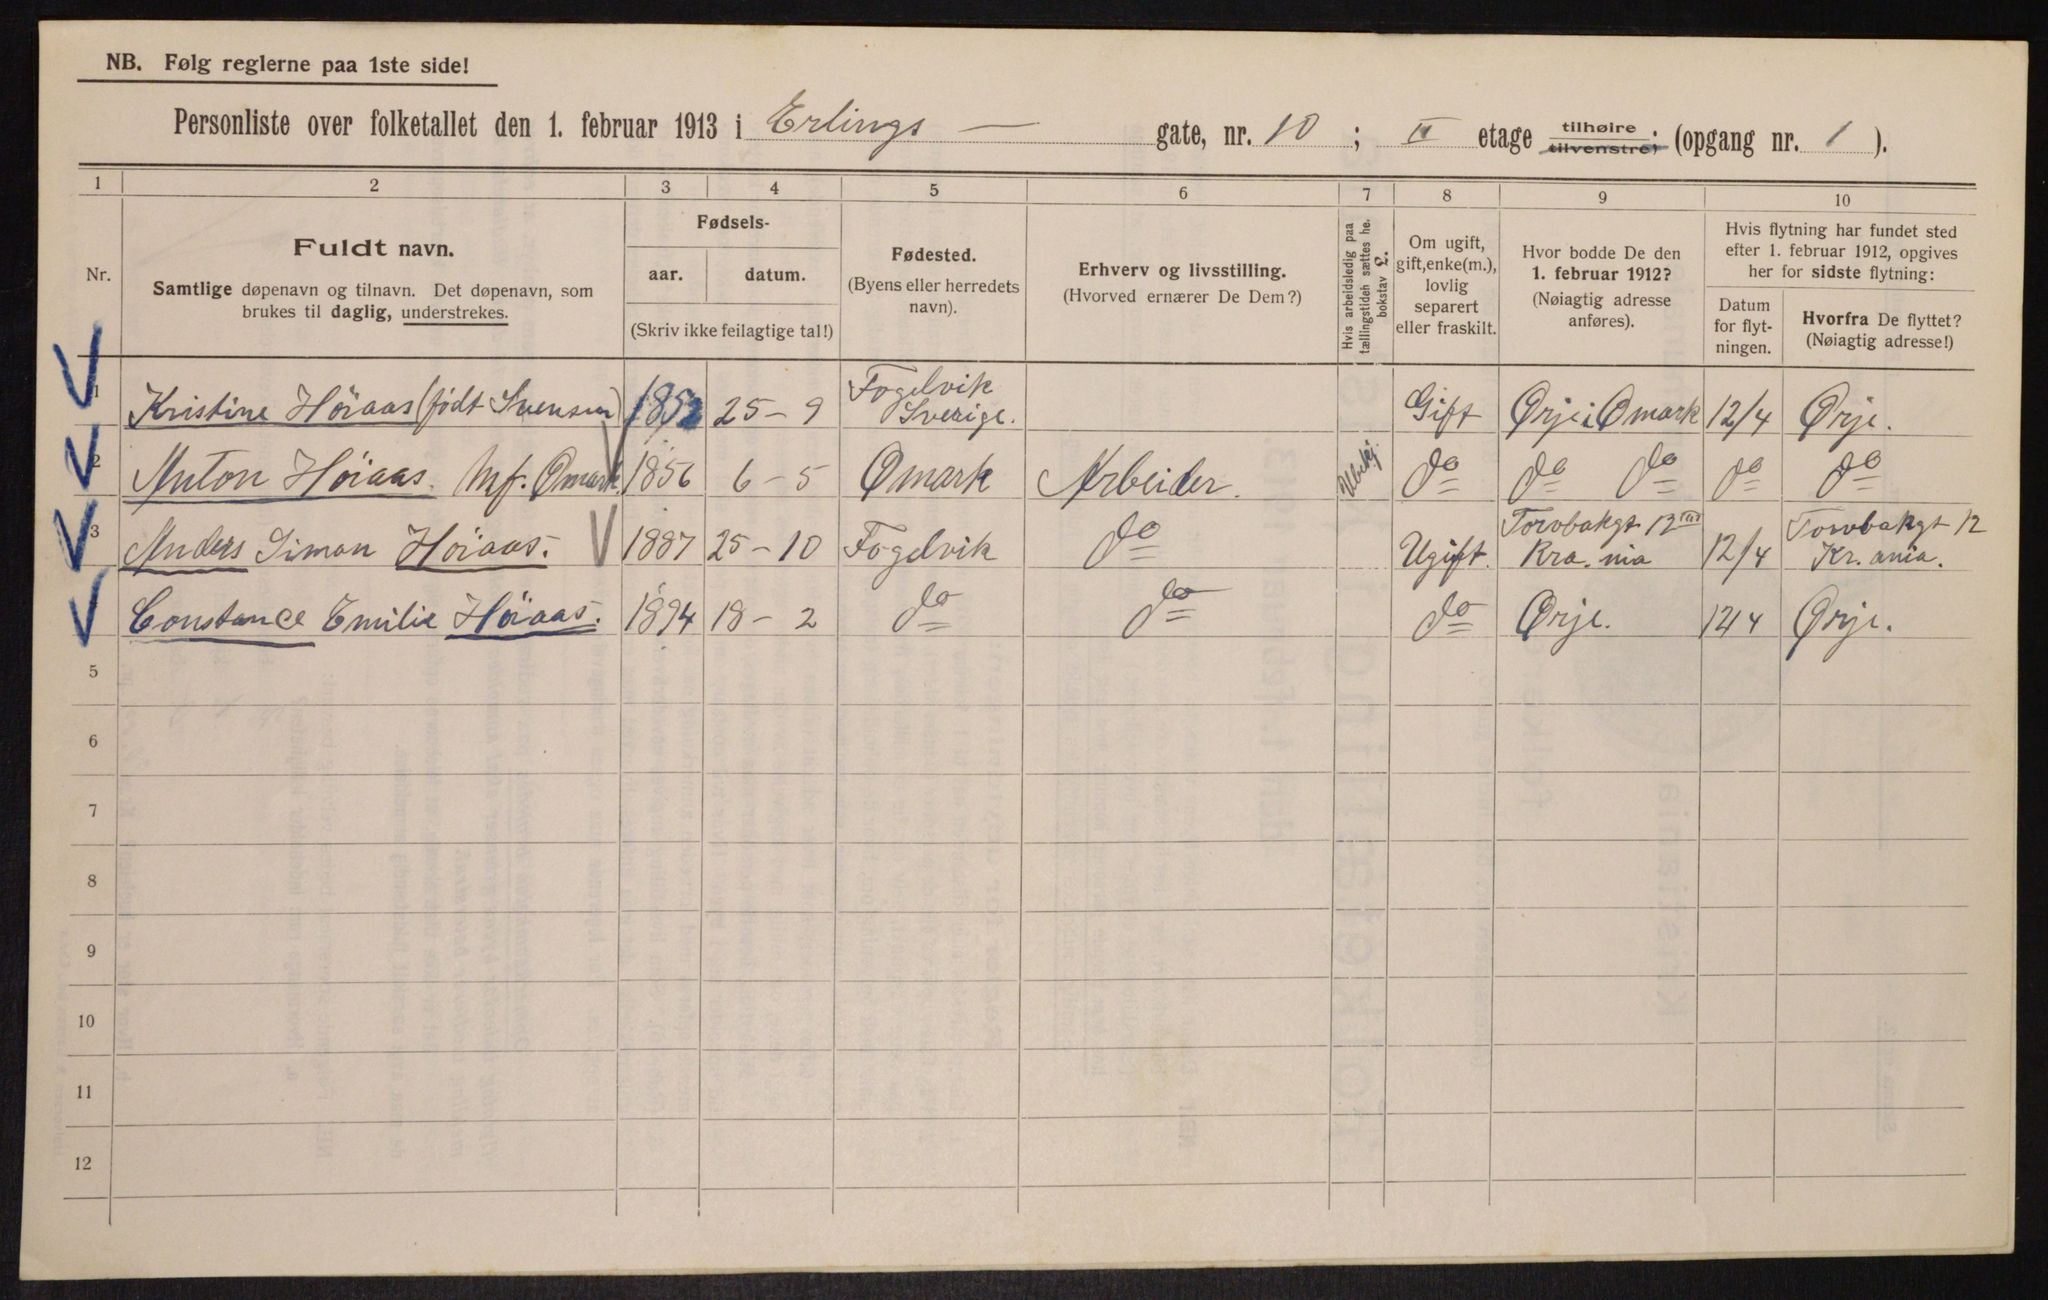 NB. Følg reglerne paa 1ste side!
Personliste over folketallet den 1. februar 1913 i Erlings — gate, nr. 10 ; II etage tilhøire tilvenstre) . (opgang nr. 1 ).
1 2 3 4 5 6 7 8 9 10
Nr.
Fuldt navn.
Samtlige døpenavn og tilnavn. Det døpenavn, som
brukes til daglig, understrekes.
Fødsels-
aar. datum.
(Skriv ikke feilagtige tal!)
Fødested.
(Byens eller herredets
navn).
Erhverv og livsstilling.
(Hvorved ernærer De Dem?)
Hvis arbeidsledig paa
tællingstiden sættes her
bokstav L.
Om ugift,
gift, enke(m.),
lovlig
separert
eller fraskilt.
Hvor bodde De den
1. februar 1912?
(Nøiagtig adresse
anføres).
Hvis flytning har fundet sted
efter 1. februar 1912, opgives
her for sidste flytning:
Datum
for flyt-
ningen.
Hvorfra De flyttet?
(Nøiagtig adresse!)
1 Kristine Höiaas (födt Svensen) 1852 25-9 Fogelvik Sverige. Gift Ørje i Ømark 12/4 Ørje.
2 Anton Höiaas. Mf. Ømark. 1856 6-5 Ømark Arbeider. do do do do do
3 Anders Simon Höiaas. 1887 25-10 Fogelvik do Ugift. Torvbakgt 12 III Kra. nia 12/4 Torvbakgt 12 Kr. ania.
Constance Emilie Höiaas. 1894 18-2 do do do Ørje. 12 4 Ørje.
5
6
7
8
9
10
11
12